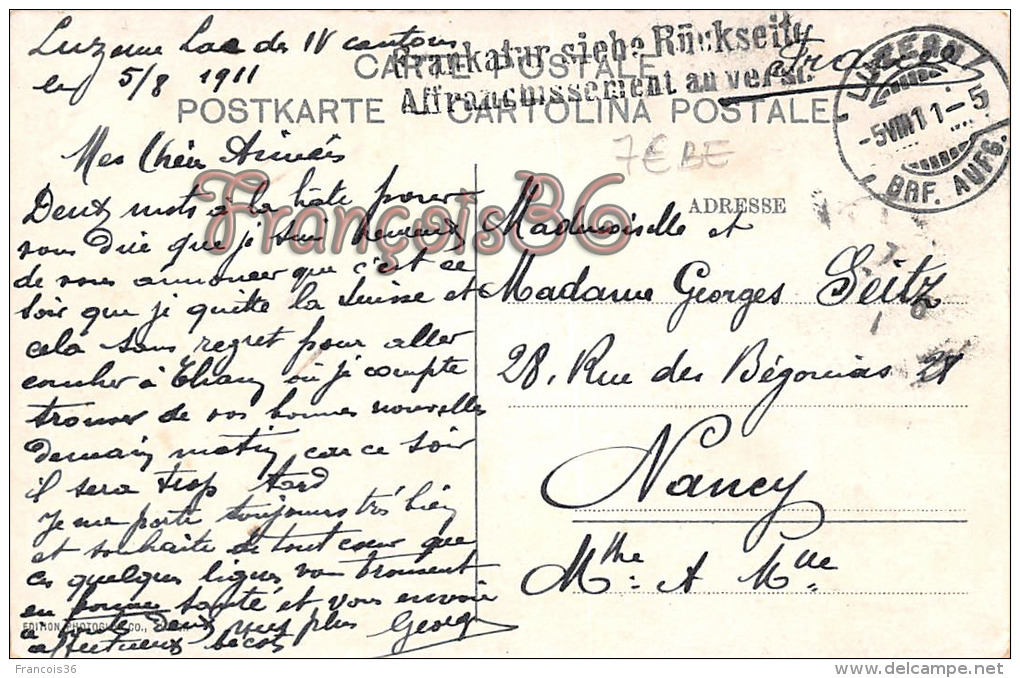 Luzerne Lac des IV cantons
le 5/8 1911
Frankatur siehe Rückseite
Affranchissement au verso.
France
CARTE POSTALE
POSTKARTE CARTOLINA POSTALE
LUZERN 1
-5 VIII 11-5
BRF. AUFG.
7€ BE
Mes Chères Aimées
Deux mots à la hâte pour
vous dire que je suis heureux
de vous annoncer que c'est ce
soir que je quitte la Suisse et
cela sans regret pour aller
coucher à Thann où je compte
trouver de vos bonnes nouvelles
demain matin car ce soir
il sera trop tard
Je me porte toujours très bien
et souhaite de tout cœur que
ces quelques lignes vous trouvent
en bonne santé et vous envoie
à toutes deux mes plus
affectueux bécots Georges
EDITION PHOTOGLOB CO.,
ADRESSE
Mademoiselle et
Madame Georges Seitz
28, Rue des Bégonias 28
Nancy
Mthe: & Mlle
François36
Francois36
www.delcampe.net